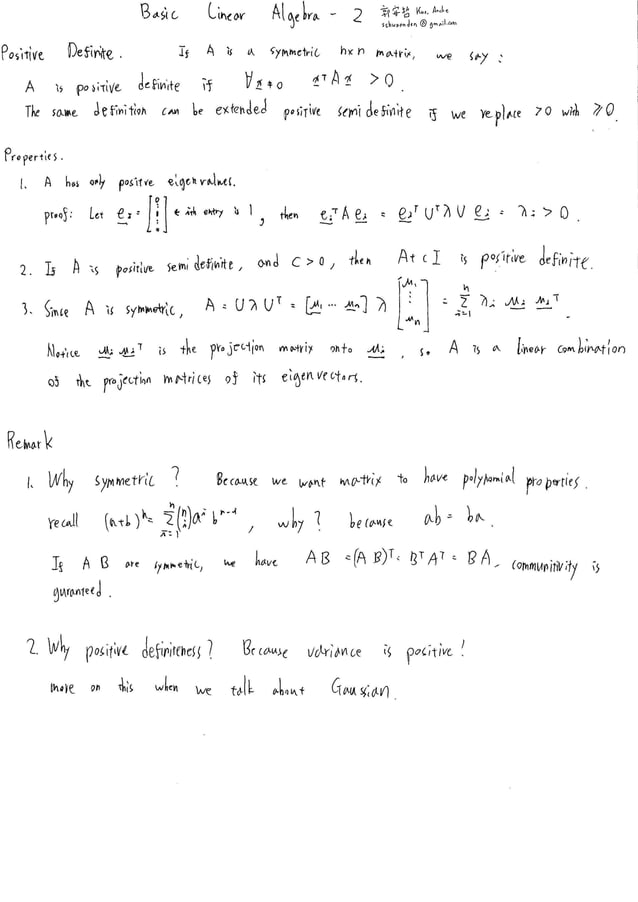 Basic Linear Algebra - 2 郭安哲 Kuo, Anche
schwannden@gmail.com
Positive Definite. If A is a symmetric n×n matrix, we say :
A is positive definite if ∀x≠0 xᵀAx > 0.
The same definition can be extended positive semi definite if we replace >0 with ≥0.
Properties.
1. A has only positive eigenvalues.
proof: Let eᵢ = [0 ⋮ 1 ⋮ 0] ← ith entry is 1, then eᵢᵀAeᵢ = eᵢᵀUᵀλUeᵢ = λᵢ > 0.
2. If A is positive semi definite, and C>0, then A+cI is positive definite.
3. Sinse A is symmetric, A = UλUᵀ = [u₁ ... uₙ] λ [u₁ ⋮ uₙ] = Σᵢ₌₁ⁿ λᵢ uᵢ uᵢᵀ.
Notice uᵢ uᵢᵀ is the projection matrix onto uᵢ, so A is a linear combination
of the projection matrices of its eigenvectors.
Remark
1. Why symmetric ? Because we want matrix to have polynomial properties.
recall (a+b)ⁿ = Σᵢ₌₁ⁿ (n i) aⁱ bⁿ⁻ⁱ, why ? because ab = ba.
If A B are symmetric, we have AB = (AB)ᵀ = BᵀAᵀ = BA, communitivity is
guranteed.
2. Why positive definiteness ? Because variance is positive !
more on this when we talk about Gaussian.